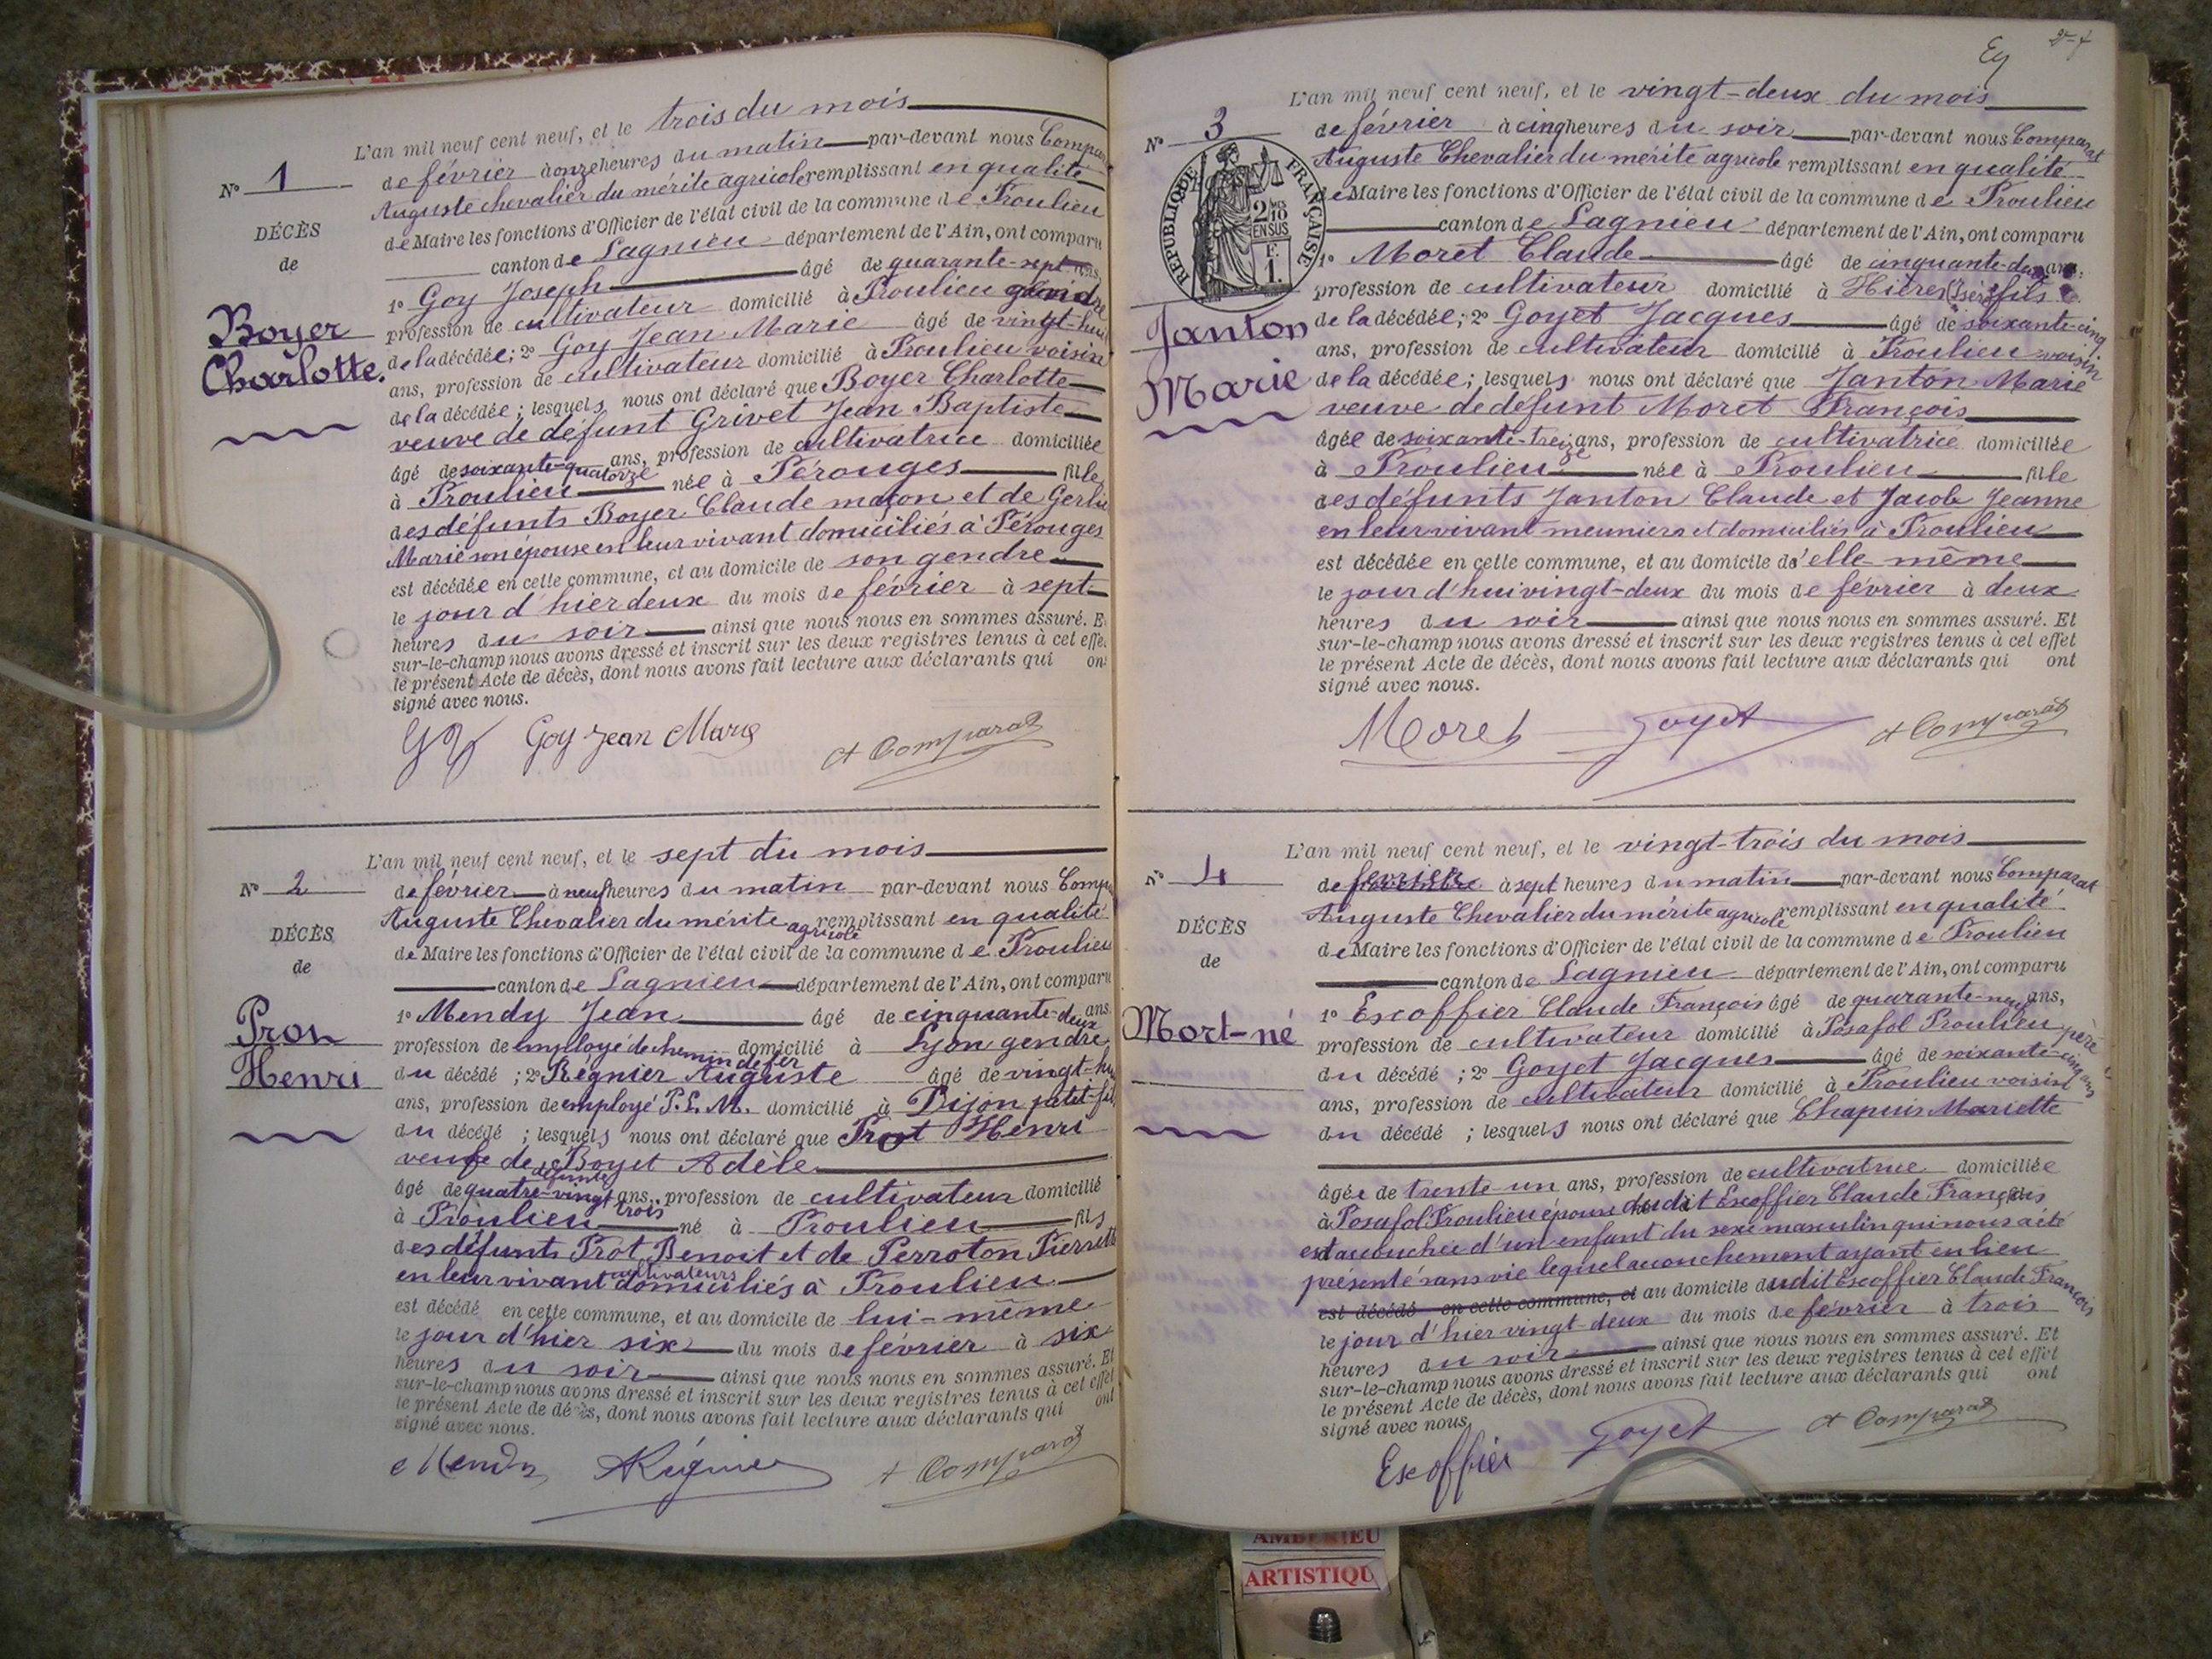 L'an mil neuf cent neuf, et le trois du mois
N° 1
de février à onze heures du matin par-devant nous Compar
Auguste chevalier du mérite agricole remplissant en qualité
DÉCÈS
de Maire les fonctions d'Officier de l'état civil de la commune de Proulieu
de
canton de Lagnieu département de l'Ain, ont comparu
1° Goy Joseph âgé de quarante-sept ans,
Boyer
profession de cultivateur domicilié à Proulieu gendre
Charlotte.
de la décédée; 2° Goy Jean Marie âgé de vingt-huit
ans, profession de cultivateur domicilié à Proulieu voisin
de la décédée; lesquels nous ont déclaré que Boyer Charlotte
veuve de défunt Grivet Jean Baptiste
âgé de soixante-quatorze ans, profession de cultivatrice domiciliée
à Proulieu née à Pérouges fille
des défunts Boyer Claude maçon et de
Marie son épouse en leur vivant domiciliés à Pérouges
est décédée en cette commune, et au domicile de son gendre
le jour d'hier deux du mois de février à sept
heures du soir ainsi que nous nous en sommes assuré. E
sur-le-champ nous avons dressé et inscrit sur les deux registres tenus à cet effe
le présent Acte de décès, dont nous avons fait lecture aux déclarants qui on
signé avec nous.
Goy Jean Marie A Comparat
L'an mil neuf cent neuf, et le sept du mois
N° 2
de février à neuf heures du matin par-devant nous Comp
Auguste Chevalier du mérite agricole remplissant en qualité
DÉCÈS
de Maire les fonctions d'Officier de l'état civil de la commune de Proulieu
de
canton de Lagnieu département de l'Ain, ont comparu
1° Mendy Jean âgé de cinquante-deux ans
Prot
profession de employé de chemin de fer domicilié à Lyon gendre
Henri
du décédé; 2° Régnier Auguste âgé de vingt-hu
ans, profession de employé P.L.M. domicilié à Dijon petit-fil
du décédé; lesquels nous ont déclaré que Prot Henri
veuf de défunte Boyet Adèle
âgé de quatre-vingt trois ans, profession de cultivateur domicilié
à Proulieu né à Proulieu fils
des défunts Prot Benoit et de Perroton Pierrette
en leur vivant cultivateurs domiciliés à Proulieu
est décédé en cette commune, et au domicile de lui-même
le jour d'hier six du mois de février à six
heures du soir ainsi que nous nous en sommes assuré. Et
sur-le-champ nous avons dressé et inscrit sur les deux registres tenus à cet effet
le présent Acte de décès, dont nous avons fait lecture aux déclarants qui ont
signé avec nous.
Mendy ARégnier A Comparat
L'an mil neuf cent neuf, et le vingt-deux du mois
N° 3
de février à cinq heures du soir par-devant nous Comparat
Auguste Chevalier du mérite agricole remplissant en qualité
RÉPUBLIQUE FRANÇAISE
2/10 EN SUS
F. 1.
de Maire les fonctions d'Officier de l'état civil de la commune de Proulieu
canton de Lagnieu département de l'Ain, ont comparu
1° Moret Claude âgé de cinquante-deux ans,
profession de cultivateur domicilié à Hières (Isère) fils
Janton
de la décédée; 2° Goyet Jacques âgé de soixante-cinq
ans, profession de cultivateur domicilié à Proulieu voisin
Marie
de la décédée; lesquels nous ont déclaré que Janton Marie
veuve de défunt Moret François
âgée de soixante-treize ans, profession de cultivatrice domiciliée
à Proulieu née à Proulieu fille
des défunts Janton Claude et Jacob Jeanne
en leur vivant meuniers et domiciliés à Proulieu
est décédée en cette commune, et au domicile d'elle-même
le jour d'hui vingt-deux du mois de février à deux
heures du soir ainsi que nous nous en sommes assuré. Et
sur-le-champ nous avons dressé et inscrit sur les deux registres tenus à cet effet
le présent Acte de décès, dont nous avons fait lecture aux déclarants qui ont
signé avec nous.
Moret Goyet A Comparat
L'an mil neuf cent neuf, et le vingt-trois du mois
N° 4
de février à sept heures du matin par-devant nous Comparat
Auguste Chevalier du mérite agricole remplissant en qualité
DÉCÈS
de Maire les fonctions d'Officier de l'état civil de la commune de Proulieu
de
canton de Lagnieu département de l'Ain, ont comparu
1° Escoffier Claude François âgé de quarante-neuf ans,
Mort-né
profession de cultivateur domicilié à Posafol Proulieu père
du décédé; 2° Goyet Jacques âgé de soixante-cinq ans
ans, profession de cultivateur domicilié à Proulieu voisin
du décédé; lesquels nous ont déclaré que Chapuis Mariette
âgée de trente-un ans, profession de cultivatrice domiciliée
à Posafol Proulieu épouse dudit Escoffier Claude François
est accouchée d'un enfant du sexe masculin qui nous a été
présenté sans vie lequel accouchement ayant eu lieu
est décédé en cette commune, et au domicile dudit Escoffier Claude François
le jour d'hier vingt-deux du mois de février à trois
heures du soir ainsi que nous nous en sommes assuré. Et
sur-le-champ nous avons dressé et inscrit sur les deux registres tenus à cet effet
le présent Acte de décès, dont nous avons fait lecture aux déclarants qui ont
signé avec nous.
Escoffier Goyet A Comparat
ARTISTIQU